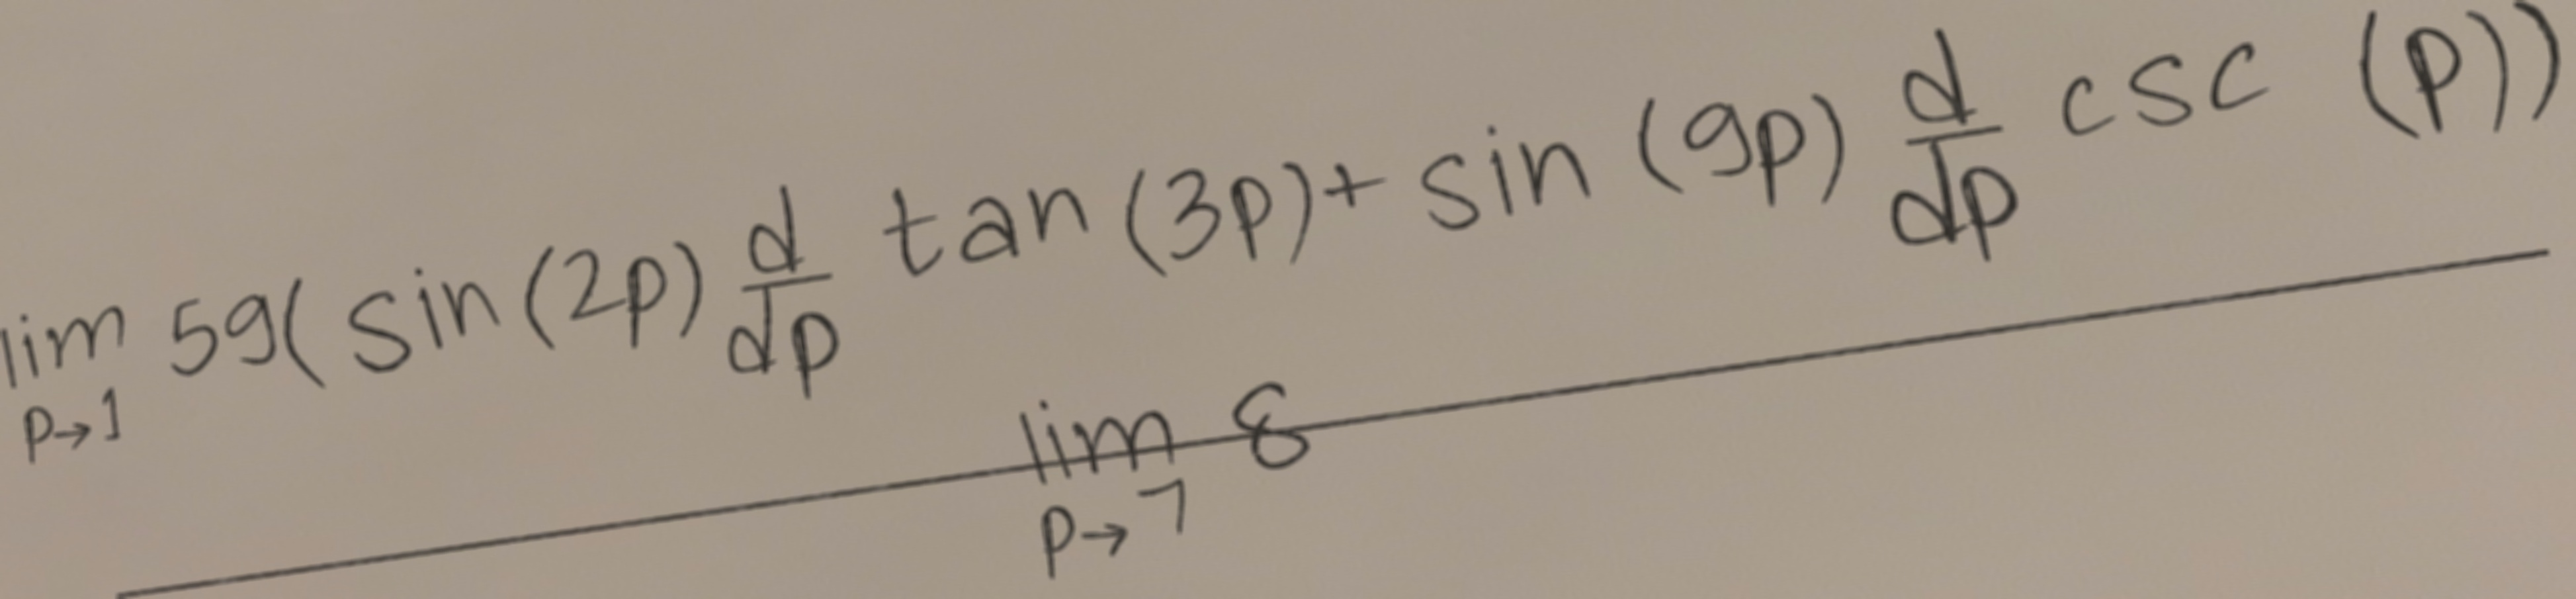 \frac{\lim_{p \to 1} 59(\sin(2p) \frac{d}{dp} \tan(3p) + \sin(9p) \frac{d}{dp} \csc(p))}{\lim_{p \to 7} 8}